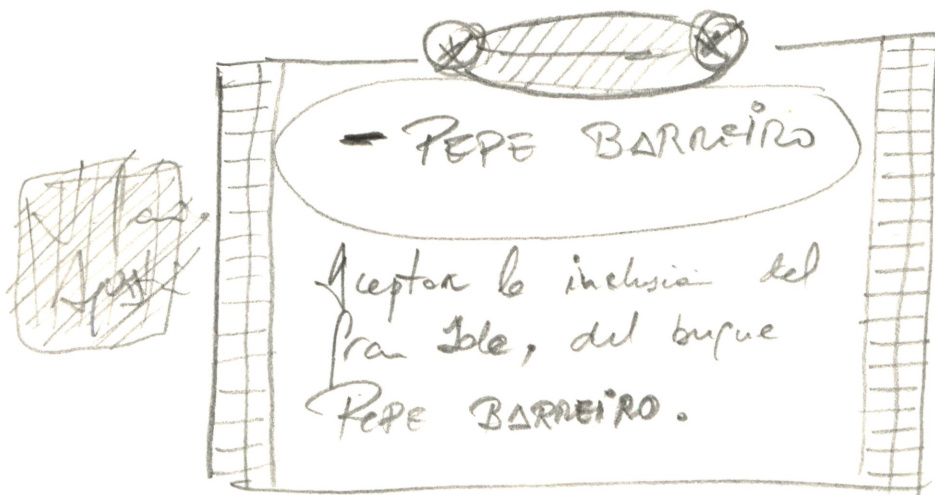 - PEPE BARREIRO
Aceptan la inclusión del
Gran Sole, del buque
PEPE BARREIRO.